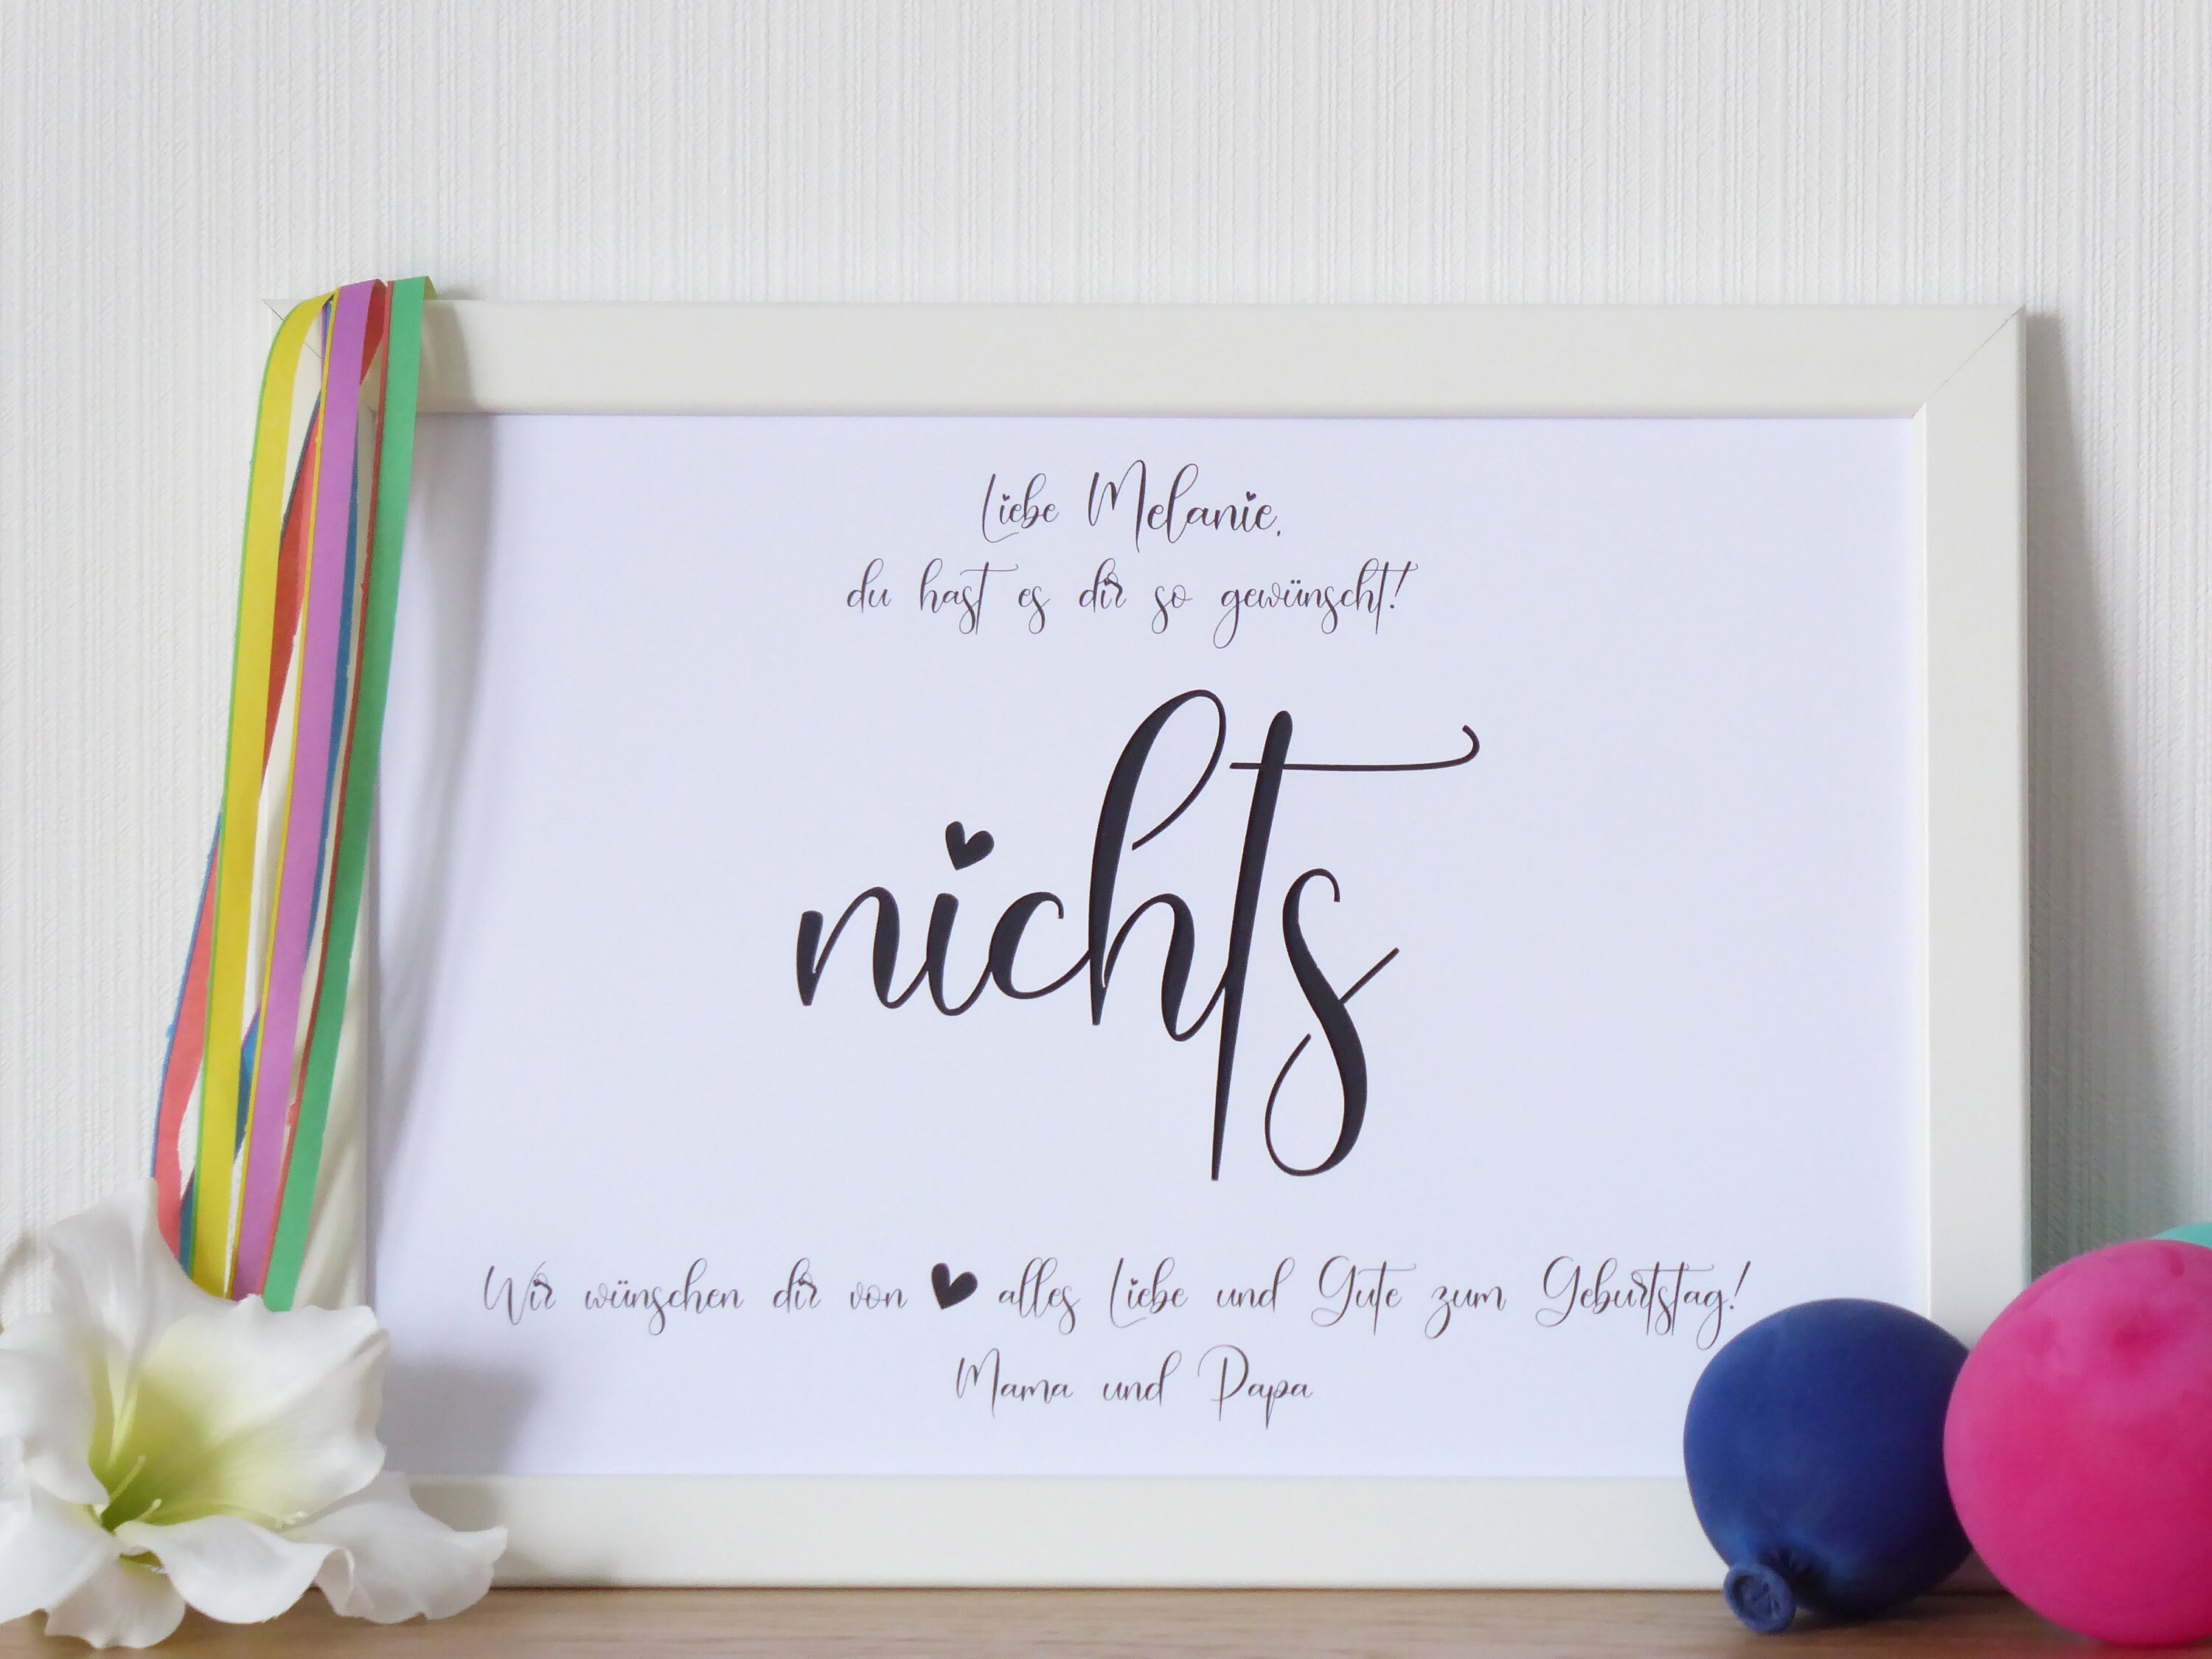 Liebe Melanie,
du hast es dir so gewünscht!
nichts
Wir wünschen dir von ♥ alles Liebe und Gute zum Geburtstag!
Mama und Papa